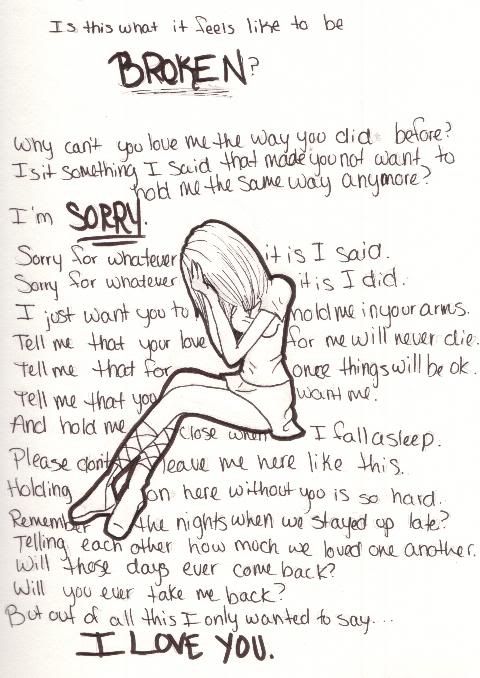 Is this what it feels like to be
BROKEN?
Why can't you love me the way you did before?
Is it something I said that made you not want to
hold me the same way anymore?
I'm SORRY.
Sorry for whatever it is I said.
Sorry for whatever it is I did.
I just want you to hold me in your arms.
Tell me that your love for me will never die.
Tell me that for once things will be ok.
Tell me that you want me.
And hold me close when I fall asleep.
Please don't leave me here like this.
Holding on here without you is so hard.
Remember the nights when we stayed up late?
Telling each other how much we loved one another.
Will those days ever come back?
Will you ever take me back?
But out of all this I only wanted to say...
I LOVE YOU.